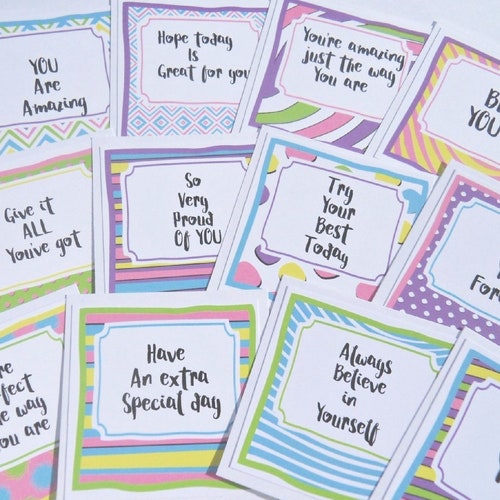 YOU
Are
Amazing
Hope today
Is
Great for you
You're amazing
just the way
You are
YOU
Give it
ALL
You've got
So
Very
Proud
Of YOU
Try
Your
Best
Today
the way
you are
Have
An extra
Special day
Always
Believe
in
Yourself